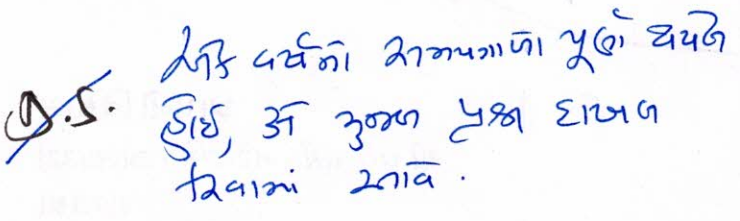 એક વર્ષનો સમયગાળો પૂર્ણ થયેલ
Q.5 હોઈ, એ મુજબ પ્રશ્ન દાખલ
કરવામાં આવે.